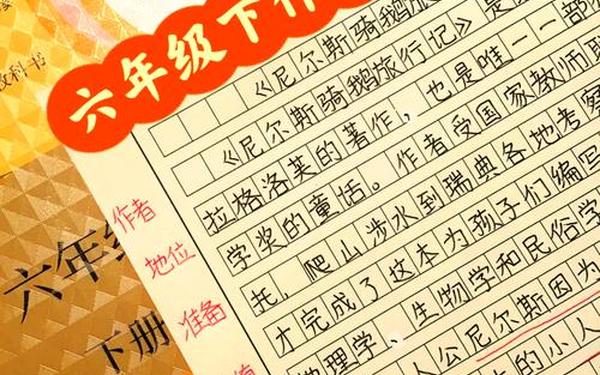 教科书
六年级
下册
六年级下作
《尼尔斯骑鹅旅行记》是
《尼尔斯骑鹅旅行记》
拉格洛芙的著作,也是唯一一部
学奖的童话。作者受国家教师联
托,爬山涉水到瑞典各地考察
才完成了这本为孩子们编写
地理学、生物学和民俗学
人公尼尔斯因为
的小人
作者
地位
准备
值